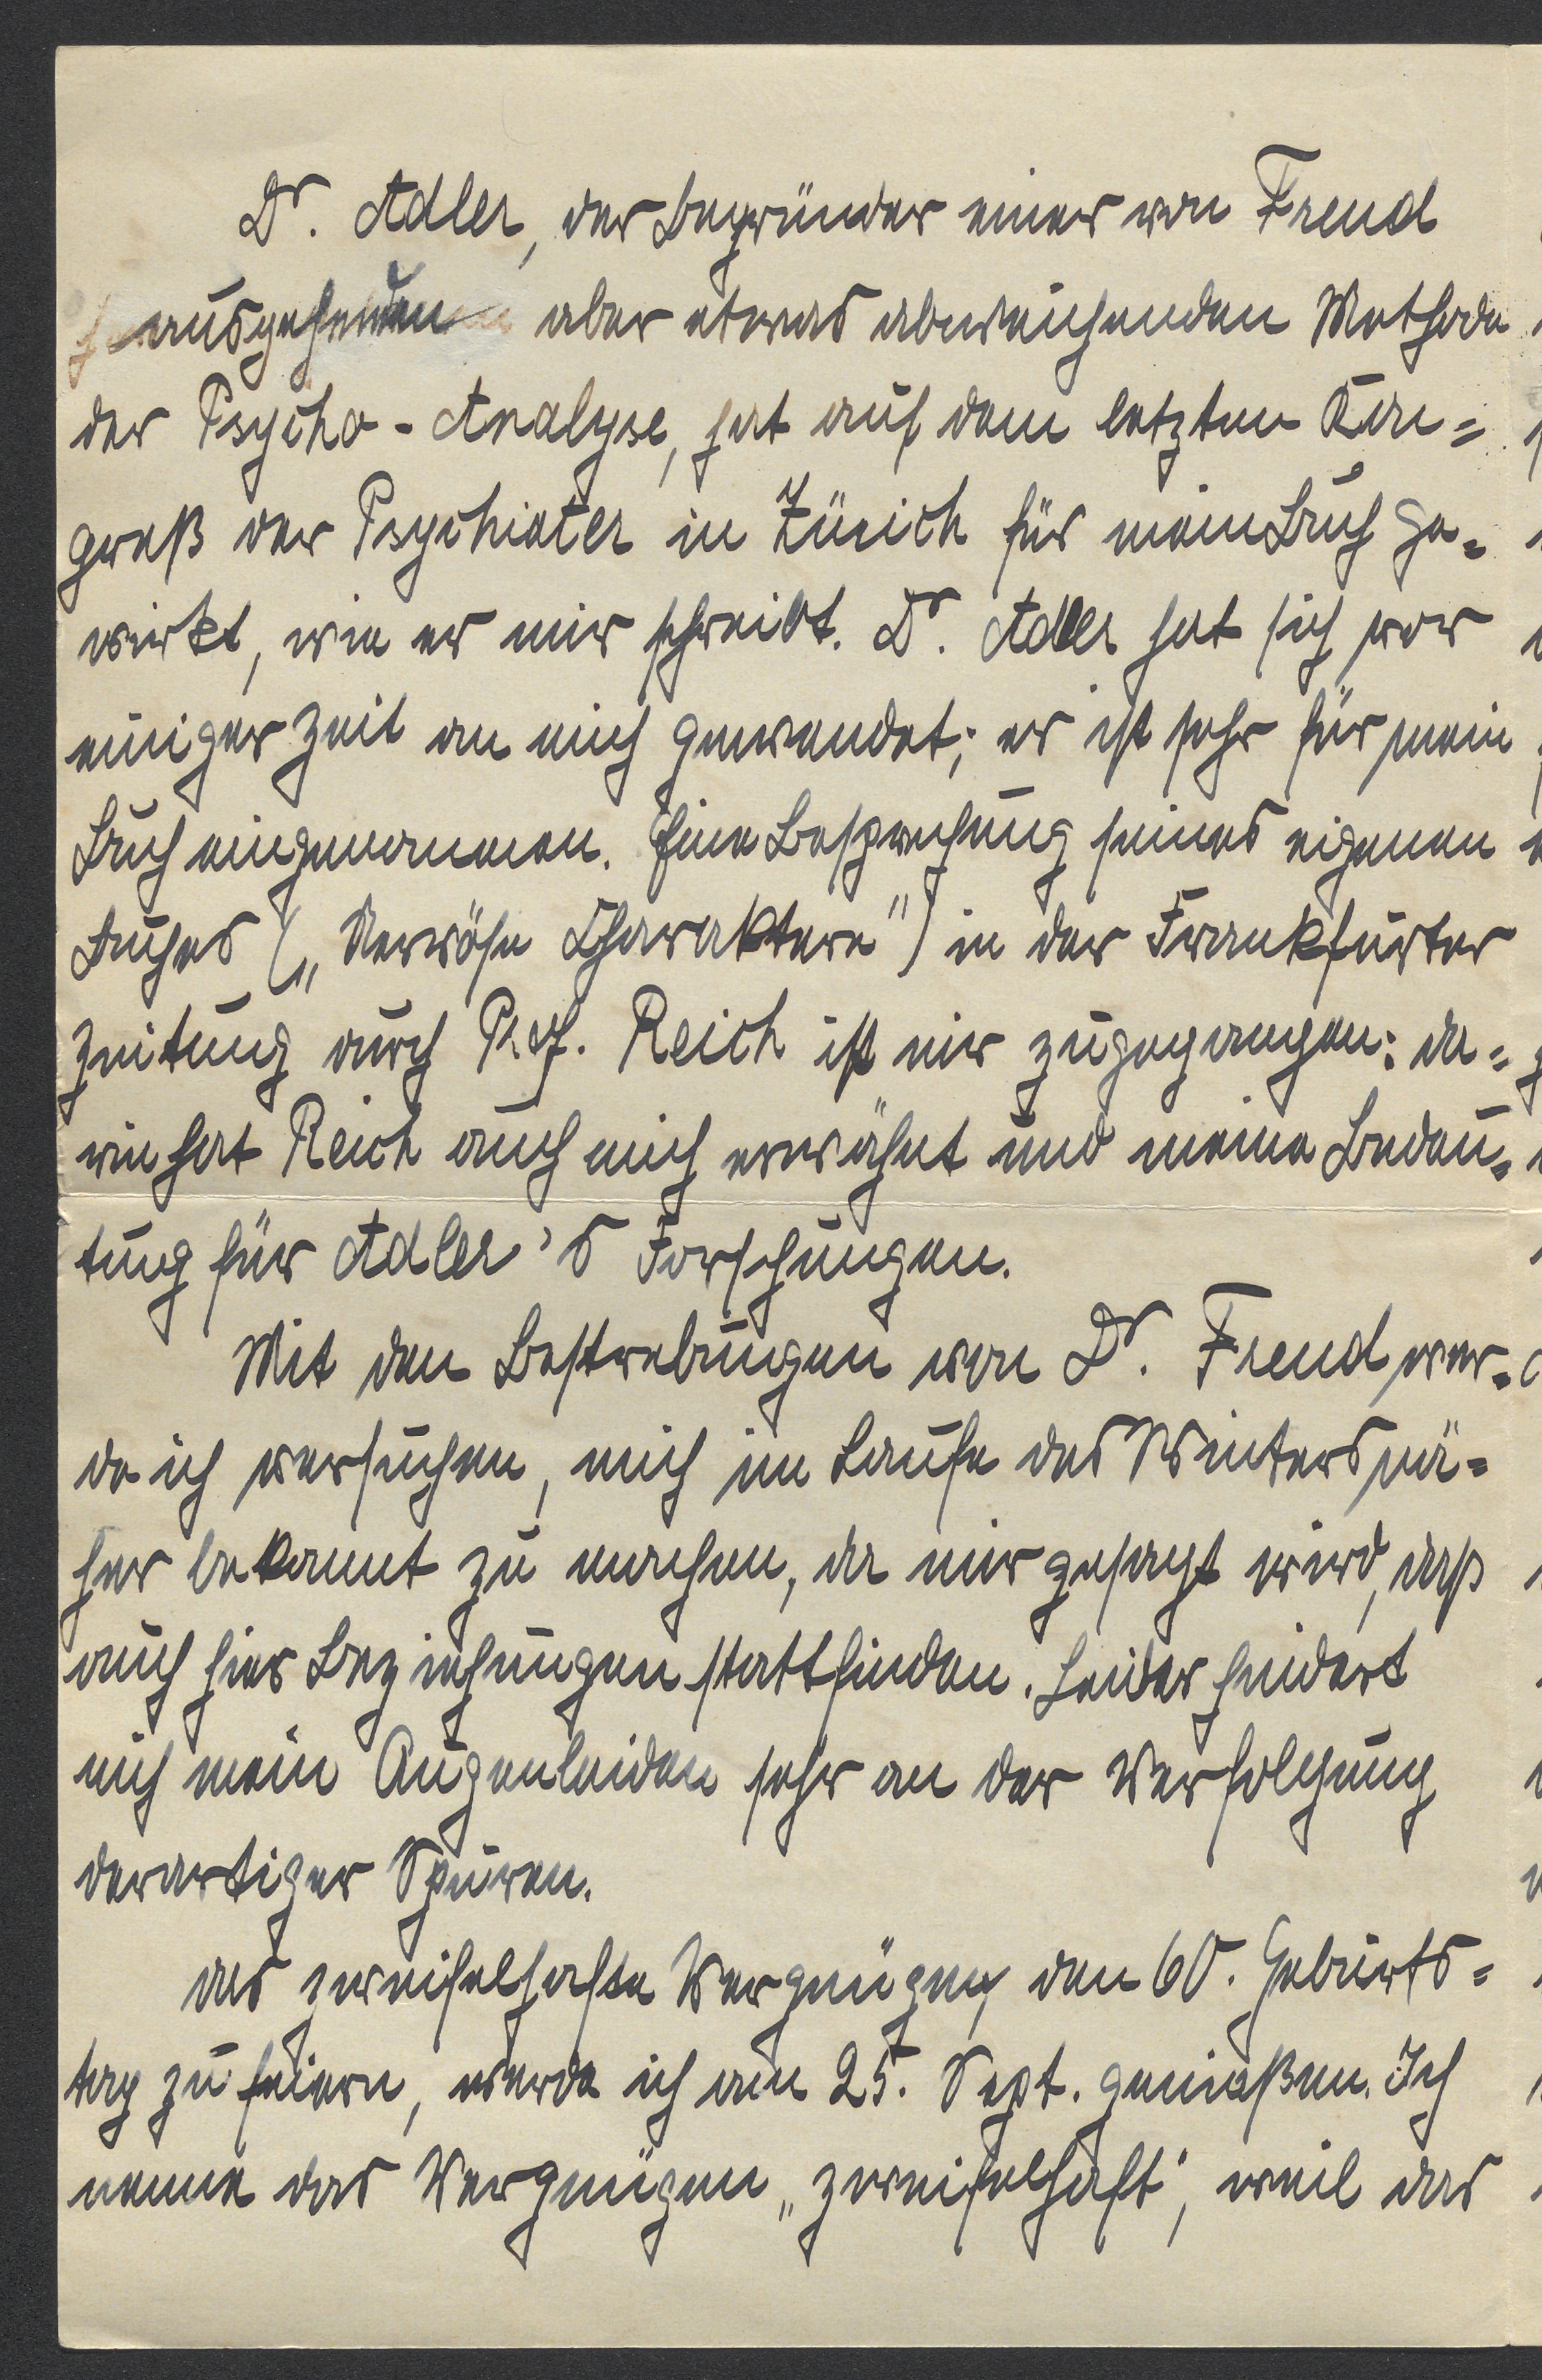 Dr. Adler, der Begründer einer von Freud
ausgehenden aber etwas abweichenden Methode
der Psycho-Analyse, hat auf dem letzten Kon=
greß der Psychiater in Zürich für mein Buch ge=
wirkt, wie er mir schreibt. Dr. Adler hat sich vor
einiger Zeit an mich gewendet; er ist sehr für mein
Buch eingenommen. Eine Besprechung seines eigenen
Buches („Nervöse Charaktere") in der Frankfurter
Zeitung durch Prof. Reich ist mir zugegangen: da=
rin hat Reich auch mich erwähnt und meine Bedeu=
tung für Adler's Forschungen.
Mit den Bestrebungen von Dr. Freud wer=
de ich versuchen, mich im Laufe des Winters nä=
her bekannt zu machen, da mir gesagt wird, daß
auch hier Beziehungen stattfinden. Leider hindert
mich mein Augenleiden sehr an der Verfolgung
derartiger Spuren.
Das zweifelhafte Vergnügen den 60. Geburts=
tag zu feiern, werde ich am 25. Sept. genießen. Ich
nenne das Vergnügen „zweifelhaft", weil das